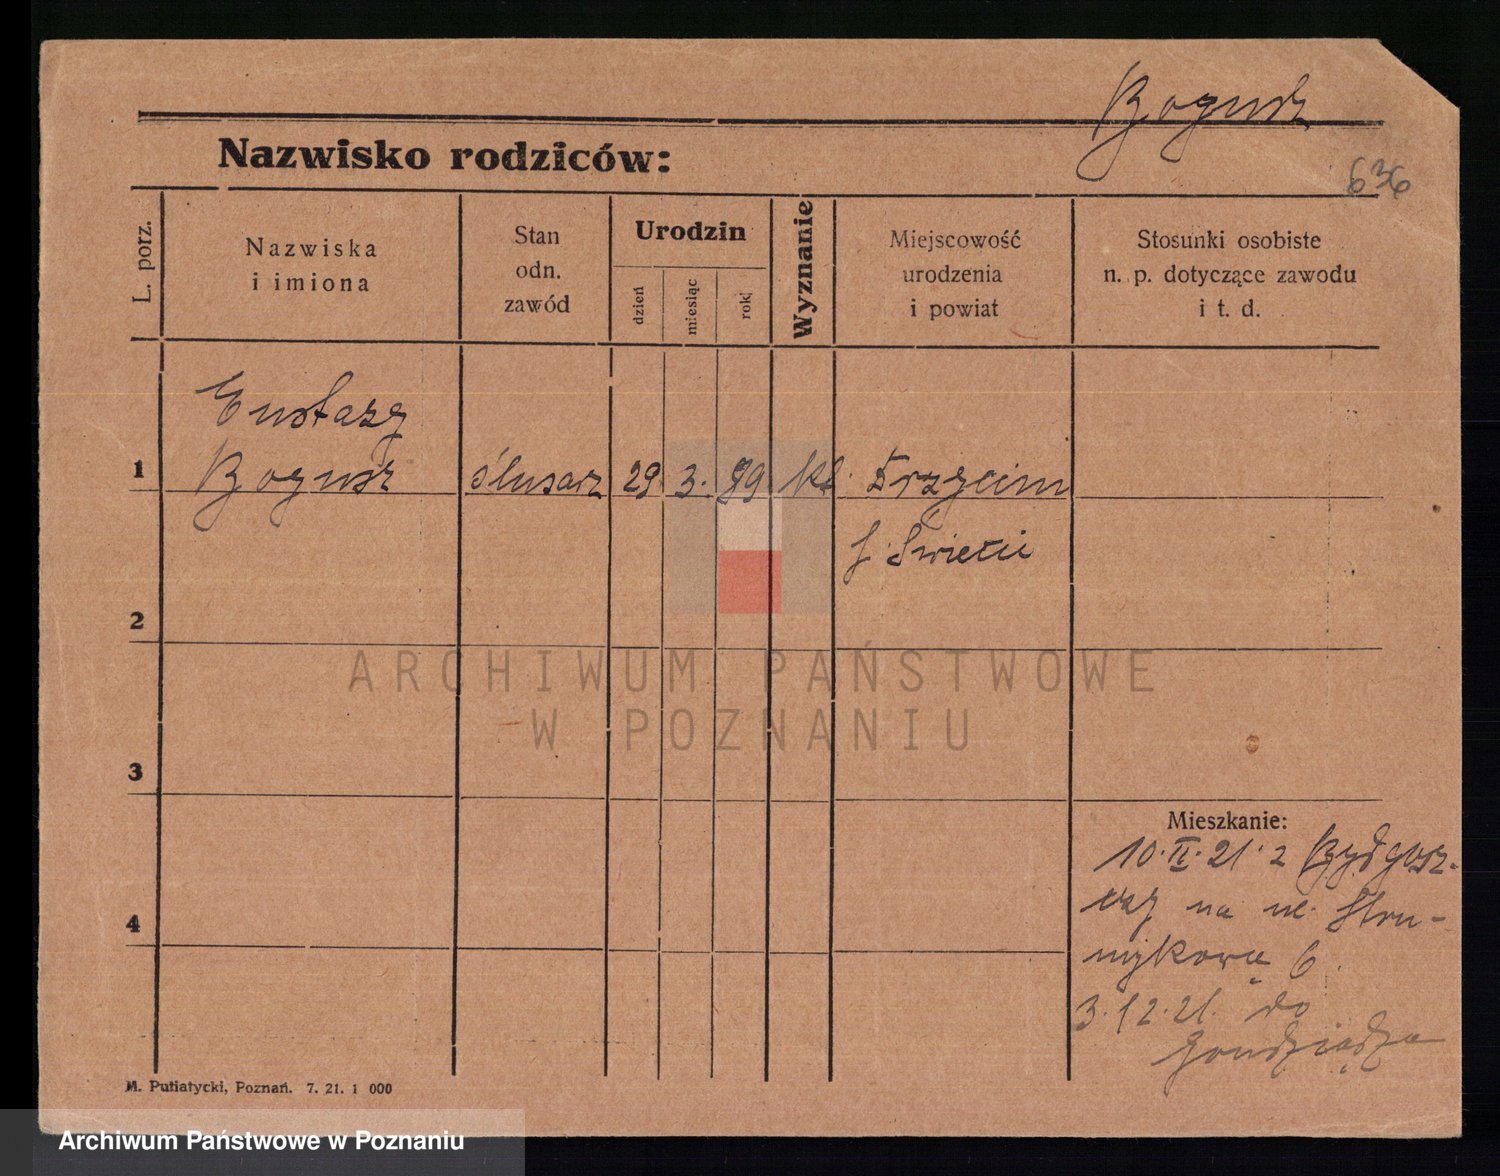 Bogusz
636
Nazwisko rodziców:
L. porz.
Nazwiska
i imiona
Stan
odn.
zawód
Urodzin
dzień
miesiąc
rok
Wyznanie
Miejscowość
urodzenia
i powiat
Stosunki osobiste
n. p. dotyczące zawodu
i t. d.
Eustazy
1 Bogusz ślusarz 29. 3. 89 kt.
Świecie
2
ARCHIWUM PAŃSTWOWE
W POZNANIU
3
Mieszkanie:
10. II. 21. z Bydgosz-
czy na ul. Stru-
mykową 6.
4
3.12.21. do
Grudziądza
M. Putiatycki, Poznań. 7. 21. 1 000
Archiwum Państwowe w Poznaniu